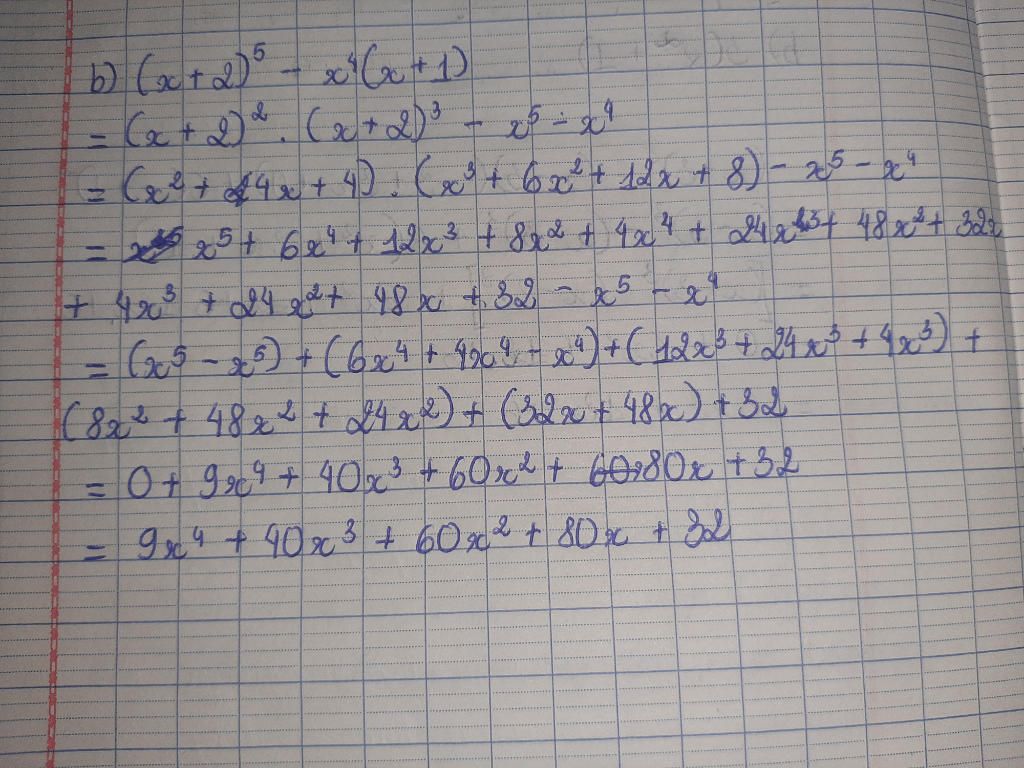 b) (x + 2)⁵ - x⁴(x + 1)
= (x + 2)² . (x + 2)³ - x⁵ - x⁴
= (x² + 4x + 4) . (x³ + 6x² + 12x + 8) - x⁵ - x⁴
= x⁵ + 6x⁴ + 12x³ + 8x² + 4x⁴ + 24x³ + 48x² + 32x
+ 4x³ + 24x² + 48x + 32 - x⁵ - x⁴
= (x⁵ - x⁵) + (6x⁴ + 4x⁴ - x⁴) + (12x³ + 24x³ + 4x³) +
(8x² + 48x² + 24x²) + (32x + 48x) + 32
= 0 + 9x⁴ + 40x³ + 60x² + 80x + 32
= 9x⁴ + 40x³ + 60x² + 80x + 32